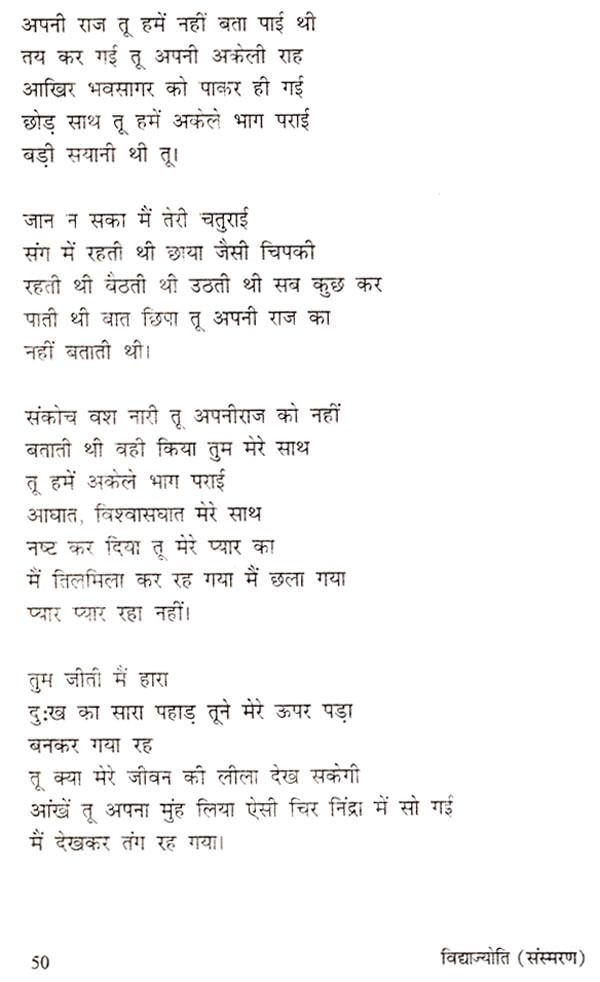 अपनी राज तू हमें नहीं बता पाई थी
तय कर गई तू अपनी अकेली राह
आखिर भवसागर को पाकर ही गई
छोड़ साथ तू हमें अकेले भाग पराई
बड़ी सयानी थी तू।
जान न सका मैं तेरी चतुराई
संग में रहती थी छाया जैसी चिपकी
रहती थी बैठती थी उठती थी सब कुछ कर
पाती थी बात छिपा तू अपनी राज का
नहीं बताती थी।
संकोच वश नारी तू अपनीराज को नहीं
बताती थी वही किया तुम मेरे साथ
तू हमें अकेले भाग पराई
आघात, विश्वासघात मेरे साथ
नष्ट कर दिया तू मेरे प्यार का
मैं तिलमिला कर रह गया मैं छला गया
प्यार प्यार रहा नहीं।
तुम जीती मैं हारा
दुःख का सारा पहाड़ तूने मेरे ऊपर पड़ा
बनकर गया रह
तू क्या मेरे जीवन की लीला देख सकेगी
आंखें तू अपना मुंह लिया ऐसी चिर निंद्रा में सो गई
मैं देखकर तंग रह गया।
50
विद्याज्योति (संस्मरण)